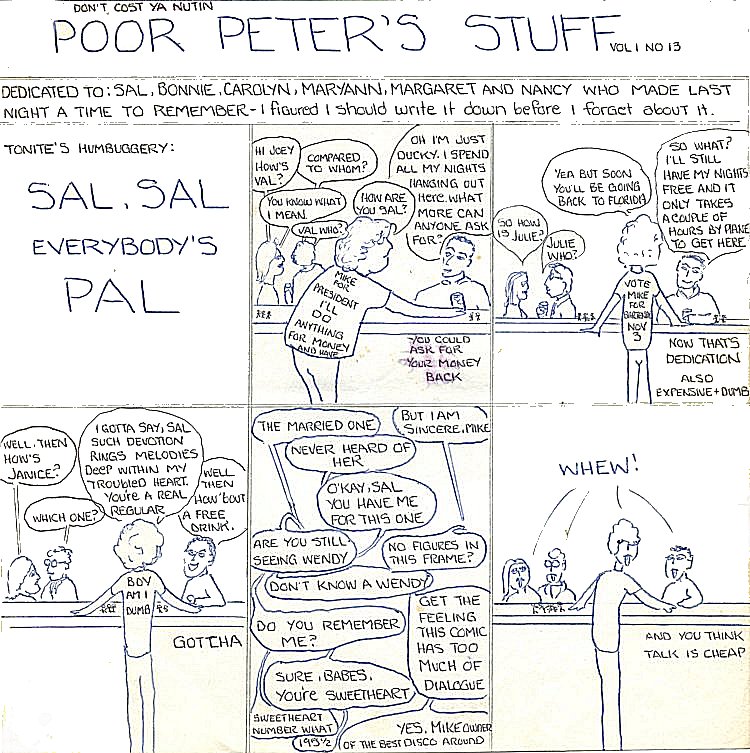 DON'T COST YA NUTIN
POOR PETER'S STUFF VOL 1 NO 13
DEDICATED TO: SAL, BONNIE, CAROLYN, MARYANN, MARGARET AND NANCY WHO MADE LAST
NIGHT A TIME TO REMEMBER - I figured I should write it down before I forget about it.
TONITE'S HUMBUGGERY:
SAL, SAL
EVERYBODY'S
PAL
HI JOEY
HOW'S
VAL?
COMPARED
TO WHOM?
YOU KNOW WHAT
I MEAN.
VAL WHO?
HOW ARE
YOU SAL?
OH I'M JUST
DUCKY. I SPEND
ALL MY NIGHTS
HANGING OUT
HERE. WHAT
MORE CAN
ANYONE ASK
FOR?
MIKE
FOR
PRESIDENT
I'LL
DO
ANYTHING
FOR MONEY
AND HAVE
YOU COULD
ASK FOR
YOUR MONEY
BACK
SO HOW
IS JULIE?
JULIE
WHO?
YEA BUT SOON
YOU'LL BE GOING
BACK TO FLORIDA
SO WHAT?
I'LL STILL
HAVE MY NIGHTS
FREE AND IT
ONLY TAKES
A COUPLE OF
HOURS BY PLANE
TO GET HERE
VOTE
MIKE
FOR
NOV
3
NOW THAT'S
DEDICATION
ALSO
EXPENSIVE + DUMB
WELL, THEN
HOW'S
JANICE?
WHICH ONE?
I GOTTA SAY, SAL
SUCH DEVOTION
RINGS MELODIES
DEEP WITHIN MY
TROUBLED HEART.
YOU'RE A REAL
REGULAR
WELL
THEN
HOW 'BOUT
A FREE
DRINK.
BOY
AM I
DUMB
GOTCHA
THE MARRIED ONE
BUT I AM
SINCERE, MIKE
NEVER HEARD OF
HER
O'KAY, SAL
YOU HAVE ME
FOR THIS ONE
ARE YOU STILL
SEEING WENDY
NO FIGURES IN
THIS FRAME?
DON'T KNOW A WENDY
DO YOU REMEMBER
ME?
GET THE
FEELING
THIS COMIC
HAS TOO
MUCH OF
DIALOGUE
SURE, BABES.
YOU'RE SWEETHEART
SWEETHEART
NUMBER WHAT
195 1/2
YES, MIKE OWNER
OF THE BEST DISCO AROUND
WHEW!
AND YOU THINK
TALK IS CHEAP